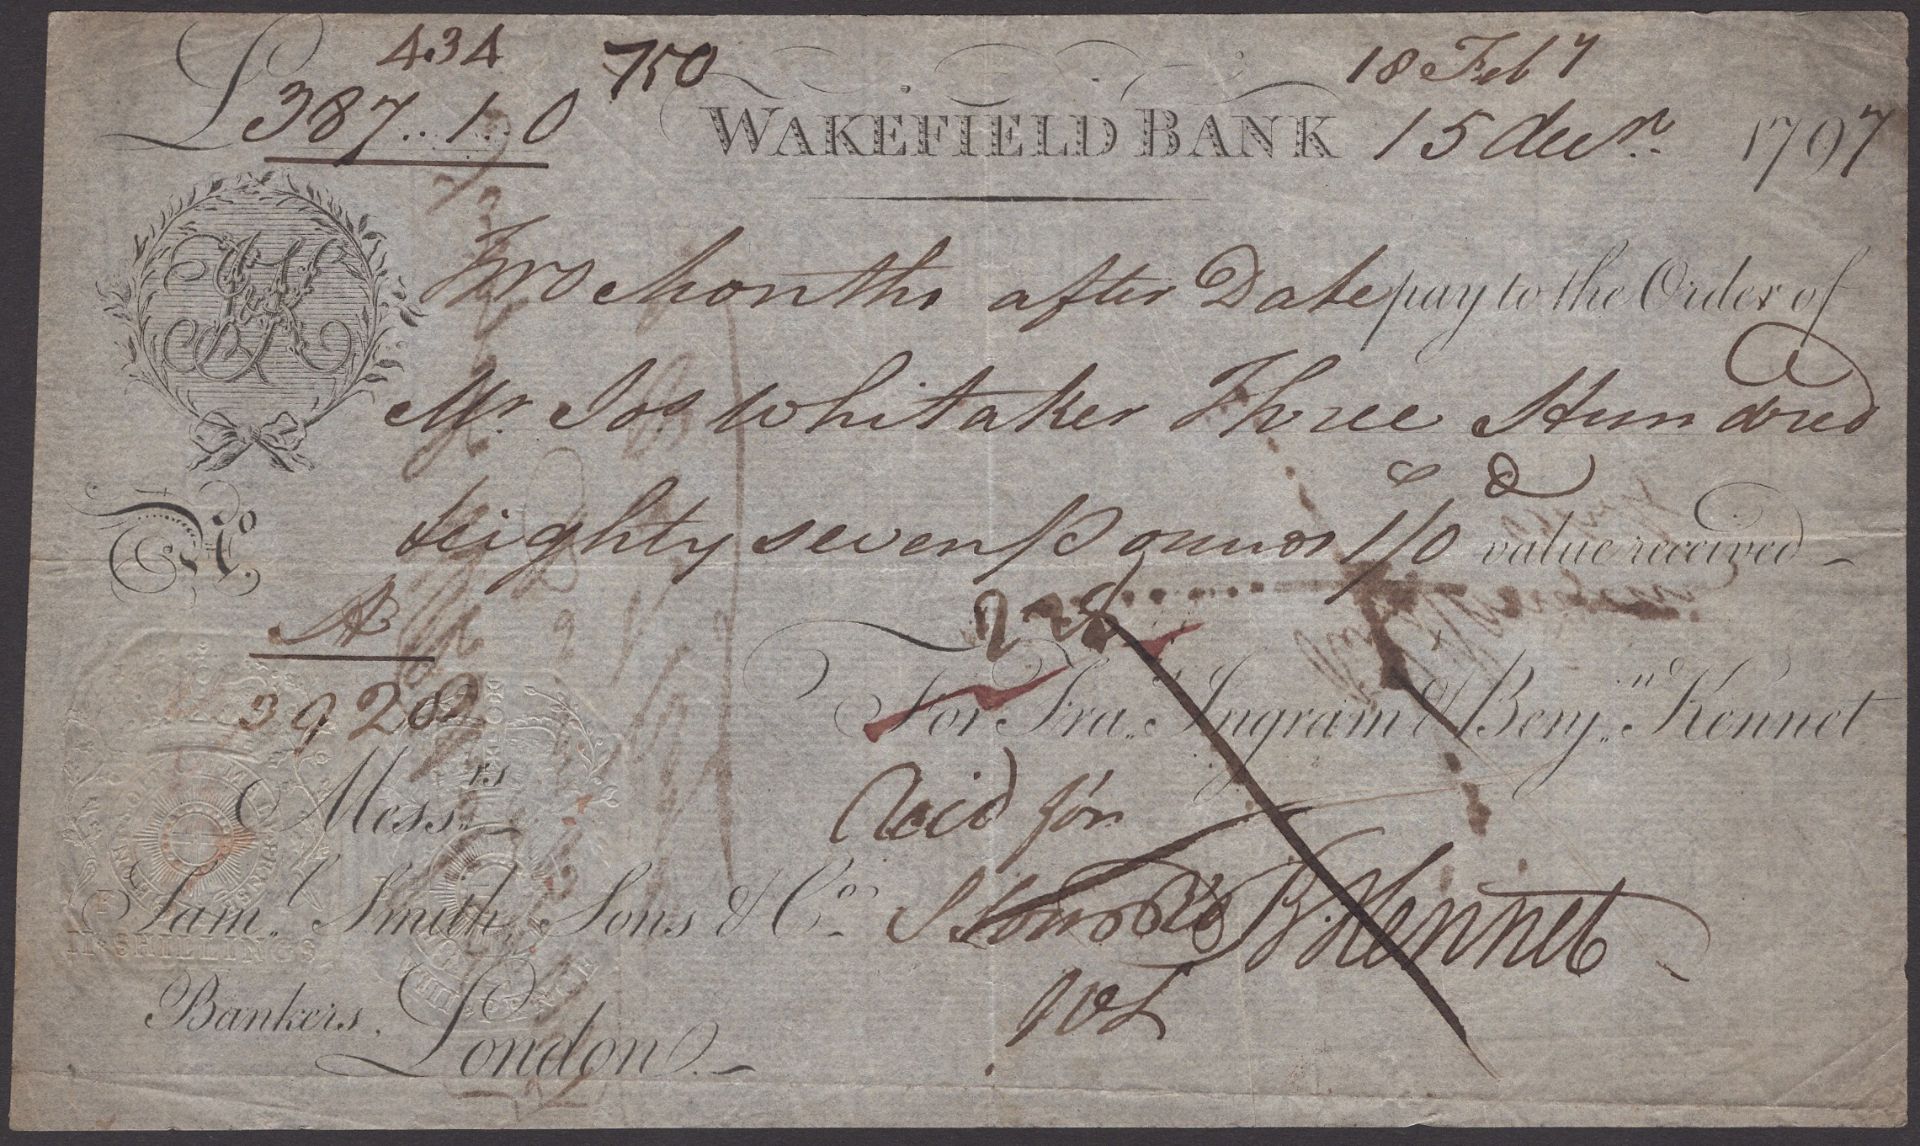 434 750 18 Feby
£387..1..0 WAKEFIELD BANK 15 decr. 1797
I&K
Two Months after Date pay to the Order of
Mr. Jos. Whitaker Three Hundred
No. & eighty seven Pounds 1/0 value received
A 228
3928 For Fra.s Ingram & Benj.n Kennet
Mess.rs Accd for
Sam.l Smith Sons & Co. B. Kennet
II SHILLINGS
Bankers.
London.